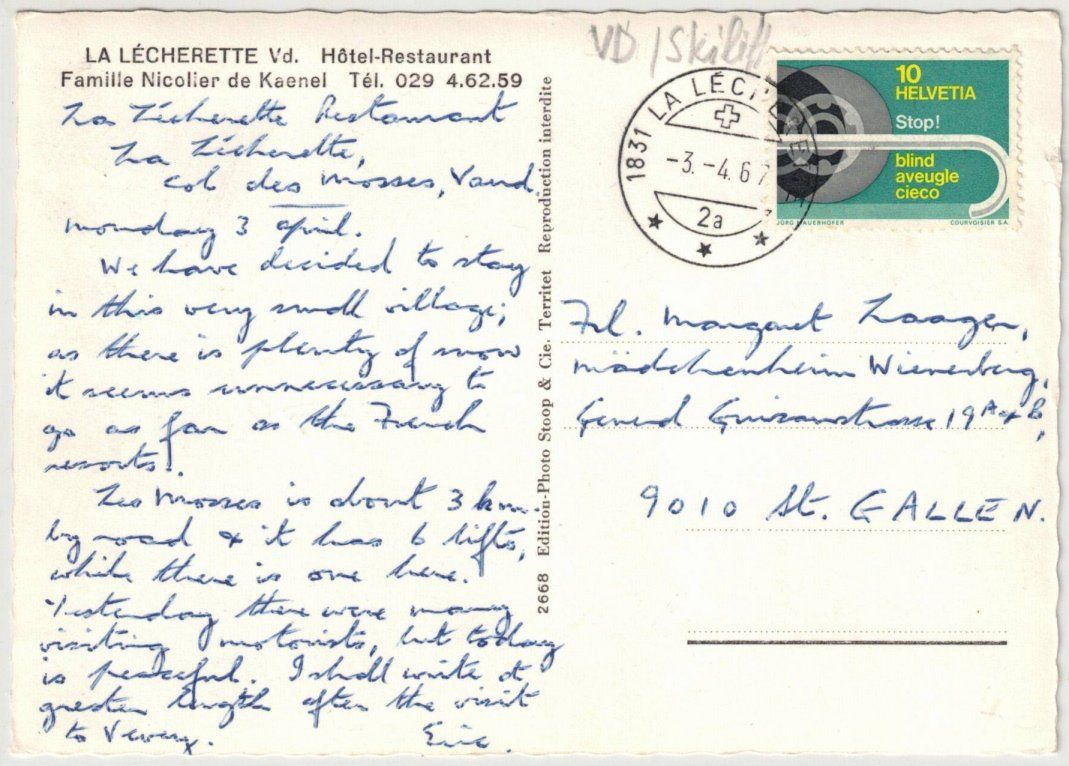 LA LÉCHERETTE Vd. Hôtel-Restaurant
Famille Nicolier de Kaenel Tél. 029 4.62.59
La Lécherette Restaurant
La Lécherette,
Col des Mosses, Vaud.
Monday 3 April.
We have decided to stay
in this very small village;
as there is plenty of snow
it seems unnecessary to
go as far as the French
resorts.
Les Mosses is about 3 km.
by road & it has 6 lifts,
while there is one here.
Yesterday there were many
visiting motorists, but today
is peaceful. I shall write at
greater length after the visit
to Vevey. Eric.
2668 Edition-Photo Stoop & Cie. Territet Reproduction interdite
VD / Skilift
1831 LA LÉCHERE
-3.-4.67
2a
10
HELVETIA
Stop!
blind
aveugle
cieco
JÖRG MAUERHOFER COURVOISIER S.A.
Frl. Margaret Laager,
Mädchenheim Wienerberg,
General Guisanstrasse 19A & B,
9010 St. GALLEN.